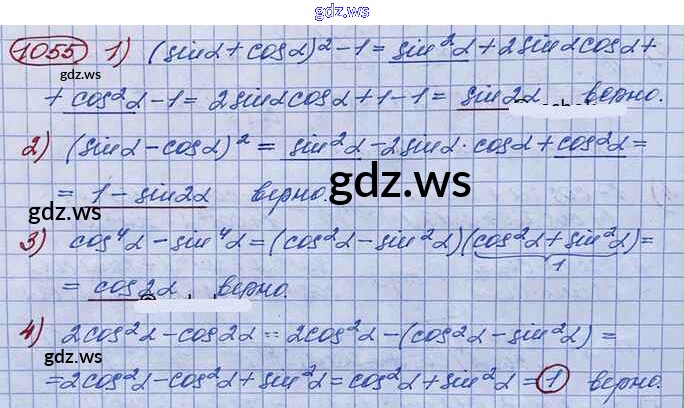 gdz.ws
1055 1) (sinα + cosα)² - 1 = sin²α + 2sinαcosα +
gdz.ws
+ cos²α - 1 = 2sinαcosα + 1 - 1 = sin2α верно.
2) (sinα - cosα)² = sin²α - 2sinα · cosα + cos²α =
gdz.ws
= 1 - sin2α верно.
gdz.ws
3) cos⁴α - sin⁴α = (cos²α - sin²α)(cos²α + sin²α) =
1
= cos2α верно.
4) 2cos²α - cos2α = 2cos²α - (cos²α - sin²α) =
gdz.ws
= 2cos²α - cos²α + sin²α = cos²α + sin²α = 1 верно.